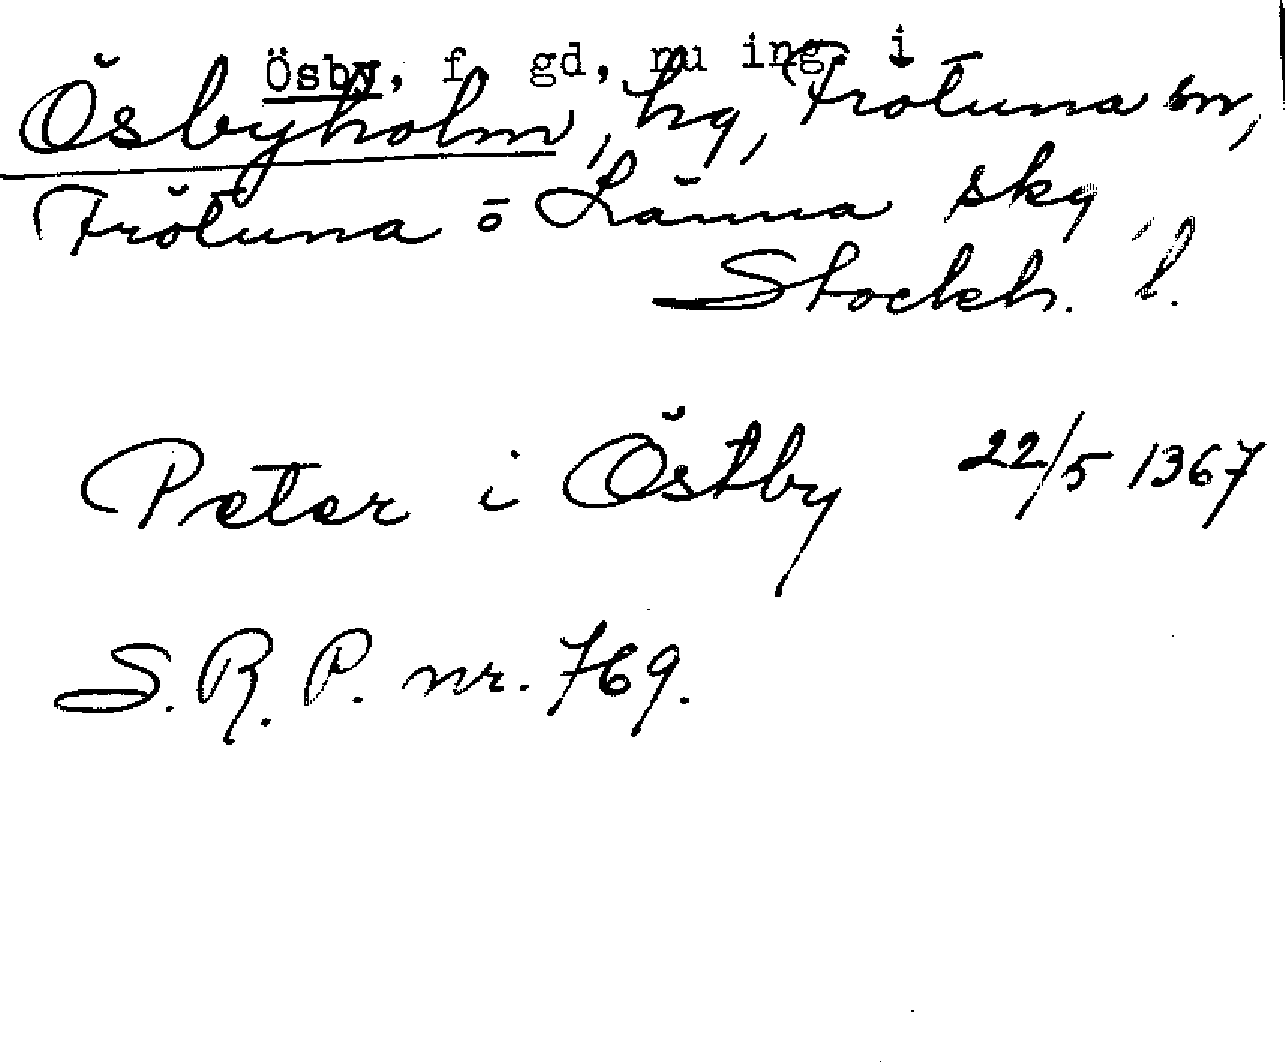 Ösby, f. gd, nu ing. i
Ösbyholm, hg, Frötuna sn,
Frötuna o Länna skg
Stockh. l.
Peter i Östby 22/5 1367
S.R.P. nr. 769.